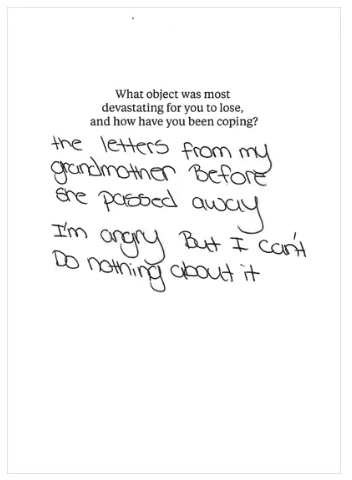 What object was most
devastating for you to lose,
and how have you been coping?
the letters from my
grandmother Before
she passed away
I'm angry But I can't
Do nothing about it